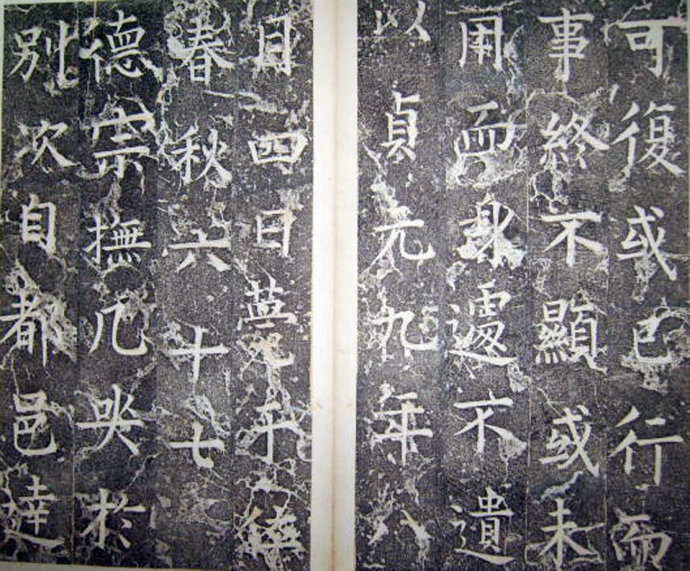 可復或已行而
事終不顯或未
用而身遽不遺
以貞元九年八
月四日薨于
春秋六十七
德宗撫几哭於
別次自都邑達